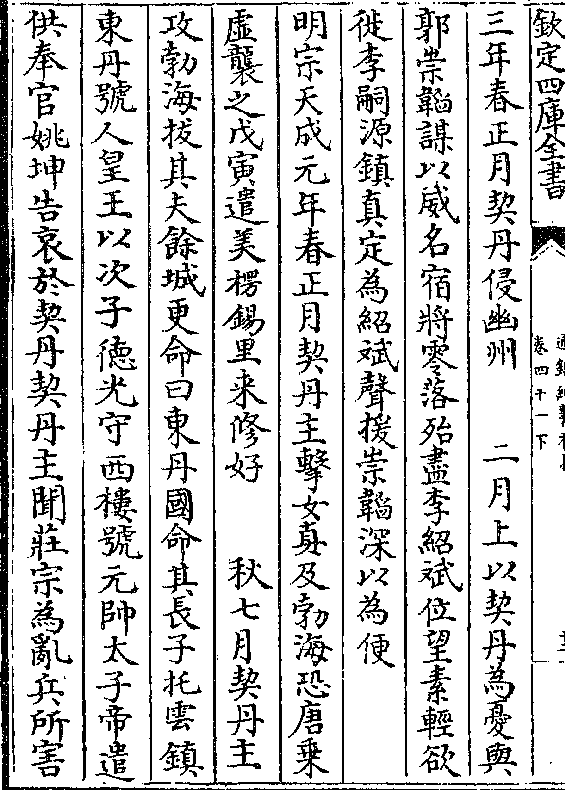 欽定四庫全書
卷四十一下
三年春正月契丹侵幽州　二月上以契丹為憂與
郭崇韜謀以威名宿將零落殆盡李紹斌位望素輕欲
徙李嗣源鎮真定為紹斌聲援崇韜深以為便
明宗天成元年春正月契丹主擊女真及勃海恐唐乗
虛襲之戊寅遣美楞錫里来修好　秋七月契丹主
攻勃海拔其夫餘城更命曰東丹國命其長子托雲鎮
東丹號人皇王以次子德光守西樓號元帥太子帝遣
供奉官姚坤告哀於契丹契丹主聞莊宗為亂兵所害